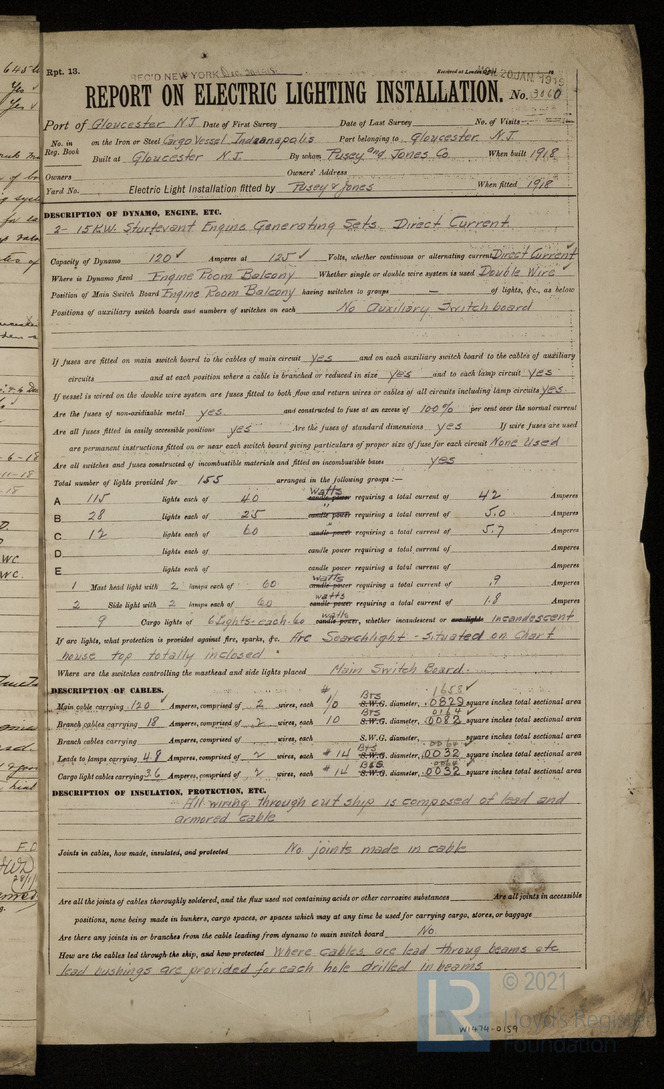 Rpt. 13.
REC'D NEW YORK Dec.
Received at London
MON. 20 JAN. 1919
REPORT ON ELECTRIC LIGHTING INSTALLATION. No. 3060
Port of Gloucester N.J. Date of First Survey Date of Last Survey No. of Visits
No. in Reg. Book on the Iron or Steel Cargo Vessel Indianapolis Port belonging to Gloucester N.J.
Built at Gloucester N.J. By whom Pusey and Jones Co. When built 1918
Owners Owners' Address
Yard No. Electric Light Installation fitted by Pusey & Jones When fitted 1918
DESCRIPTION OF DYNAMO, ENGINE, ETC.
2- 15 K.W. Sturtevant Engine Generating Sets. Direct Current
Capacity of Dynamo 120 ✓ Amperes at 125 ✓ Volts, whether continuous or alternating current Direct Current ✓
Where is Dynamo fixed Engine Room Balcony Whether single or double wire system is used Double Wire ✓
Position of Main Switch Board Engine Room Balcony having switches to groups — of lights, &c., as below
Positions of auxiliary switch boards and numbers of switches on each No Auxiliary Switchboard
If fuses are fitted on main switch board to the cables of main circuit yes and on each auxiliary switch board to the cables of auxiliary
circuits and at each position where a cable is branched or reduced in size yes and to each lamp circuit yes
If vessel is wired on the double wire system are fuses fitted to both flow and return wires or cables of all circuits including lamp circuits yes.
Are the fuses of non-oxidizable metal yes. and constructed to fuse at an excess of 100% per cent over the normal current
Are all fuses fitted in easily accessible positions yes Are the fuses of standard dimensions yes If wire fuses are used
are permanent instructions fitted on or near each switch board giving particulars of proper size of fuse for each circuit None Used
Are all switches and fuses constructed of incombustible materials and fitted on incombustible bases yes
Total number of lights provided for 155 arranged in the following groups :—
A 115 lights each of 40 Watts candle power requiring a total current of 42 Amperes
B 28 lights each of 25 " candle power requiring a total current of 5.0 Amperes
C 12 lights each of 60 " candle power requiring a total current of 5.7 Amperes
D lights each of candle power requiring a total current of Amperes
E lights each of candle power requiring a total current of Amperes
1 Mast head light with 2 lamps each of 60 watts candle power requiring a total current of .9 Amperes
2 Side light with 2 lamps each of 60 watts candle power requiring a total current of 1.8 Amperes
9 Cargo lights of 6 Lights-each-60 watts candle power, whether incandescent or arc lights Incandescent
If arc lights, what protection is provided against fire, sparks, &c. Arc Searchlight - Situated on Chart
house top totally inclosed
Where are the switches controlling the masthead and side lights placed Main Switch Board.
DESCRIPTION OF CABLES.
Main cable carrying 120 ✓ Amperes, comprised of 2 wires, each # 1/0 B&S S.W.G. diameter, .0829 square inches total sectional area
Branch cables carrying 18 Amperes, comprised of 2 wires, each 10 B&S S.W.G. diameter, .0082 square inches total sectional area
Branch cables carrying Amperes, comprised of wires, each S.W.G. diameter, square inches total sectional area
Leads to lamps carrying 4.8 Amperes, comprised of 2 wires, each # 14 B&S S.W.G. diameter, .0032 square inches total sectional area
Cargo light cables carrying 3.6 Amperes, comprised of 2 wires, each # 14 B&S S.W.G. diameter, .0032 square inches total sectional area
DESCRIPTION OF INSULATION, PROTECTION, ETC.
All wiring through out ship is composed of lead and
armored cable
Joints in cables, how made, insulated, and protected No joints made in cable
Are all the joints of cables thoroughly soldered, and the flux used not containing acids or other corrosive substances Are all joints in accessible
positions, none being made in bunkers, cargo spaces, or spaces which may at any time be used for carrying cargo, stores, or baggage
Are there any joints in or branches from the cable leading from dynamo to main switch board No.
How are the cables led through the ship, and how protected Where cables are lead throug beams etc
lead bushings are provided for each hole drilled in beams
W1474-0159
LR © 2021
Lloyd's Register
Foundation